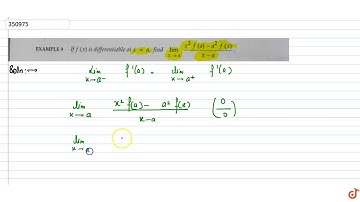 350975
EXAMPLE 6 If f (x) is differentiable at x = a, find lim x→a x² f (a) – a² f (x) / x – a
Soln:
lim x→a⁻ f'(a) = lim x→a⁺ f'(a)
lim x→a x² f(a) – a² f(x) / x–a (0/0)
lim x→a